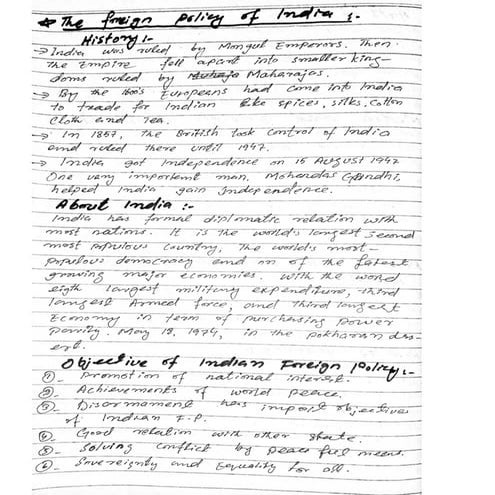 * The foreign policy of India :-
History :-
→ India was ruled by Mongul Emperors. Then
the Empire fell apart into smaller king-
doms ruled by Maharajas.
→ By the 1600's Europeans had came into India
to trade for Indian like spices, silks, cotton
cloth and Tea.
→ In 1857, the British took control of India
and ruled there until 1947.
→ India got Independence on 15 August 1947
One very important man, Mohandas Gandhi,
helped India gain Independence.
About India :-
India has formal diplomatic relation with
most nations. It is the world's longest second
most populous country, the world's most-
populous democracy and on of the fastest
growing major economies. With the world
eigth largest military expenditure, third
longest Armed force, and third longest
Economy in term of purchasing power
parity. May 18, 1974, in the pokharan des-
ert.
Objective of Indian Foreign Policy :-
①- Promotion of national interest.
②- Achievements of world peace.
③- Disarmament has import objectives
of Indian F.P.
④- Good relation with other state.
⑤- Solving conflict by peace ful means.
⑥- Sovereignity and Equality for all.